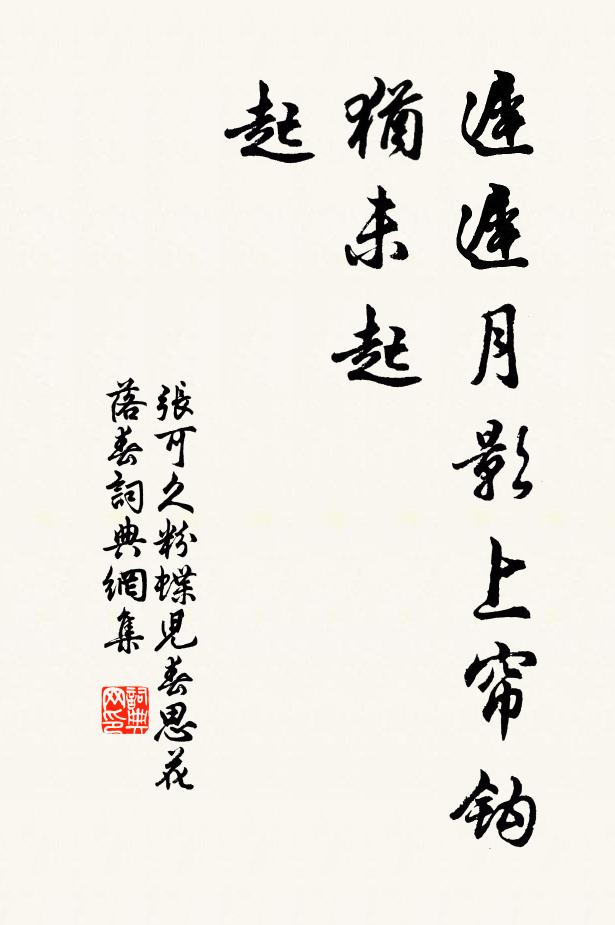 遲遲月影上帘鈎
猶未起
起
張可久粉蝶児春思花
落春詞典網集
詞典
网印